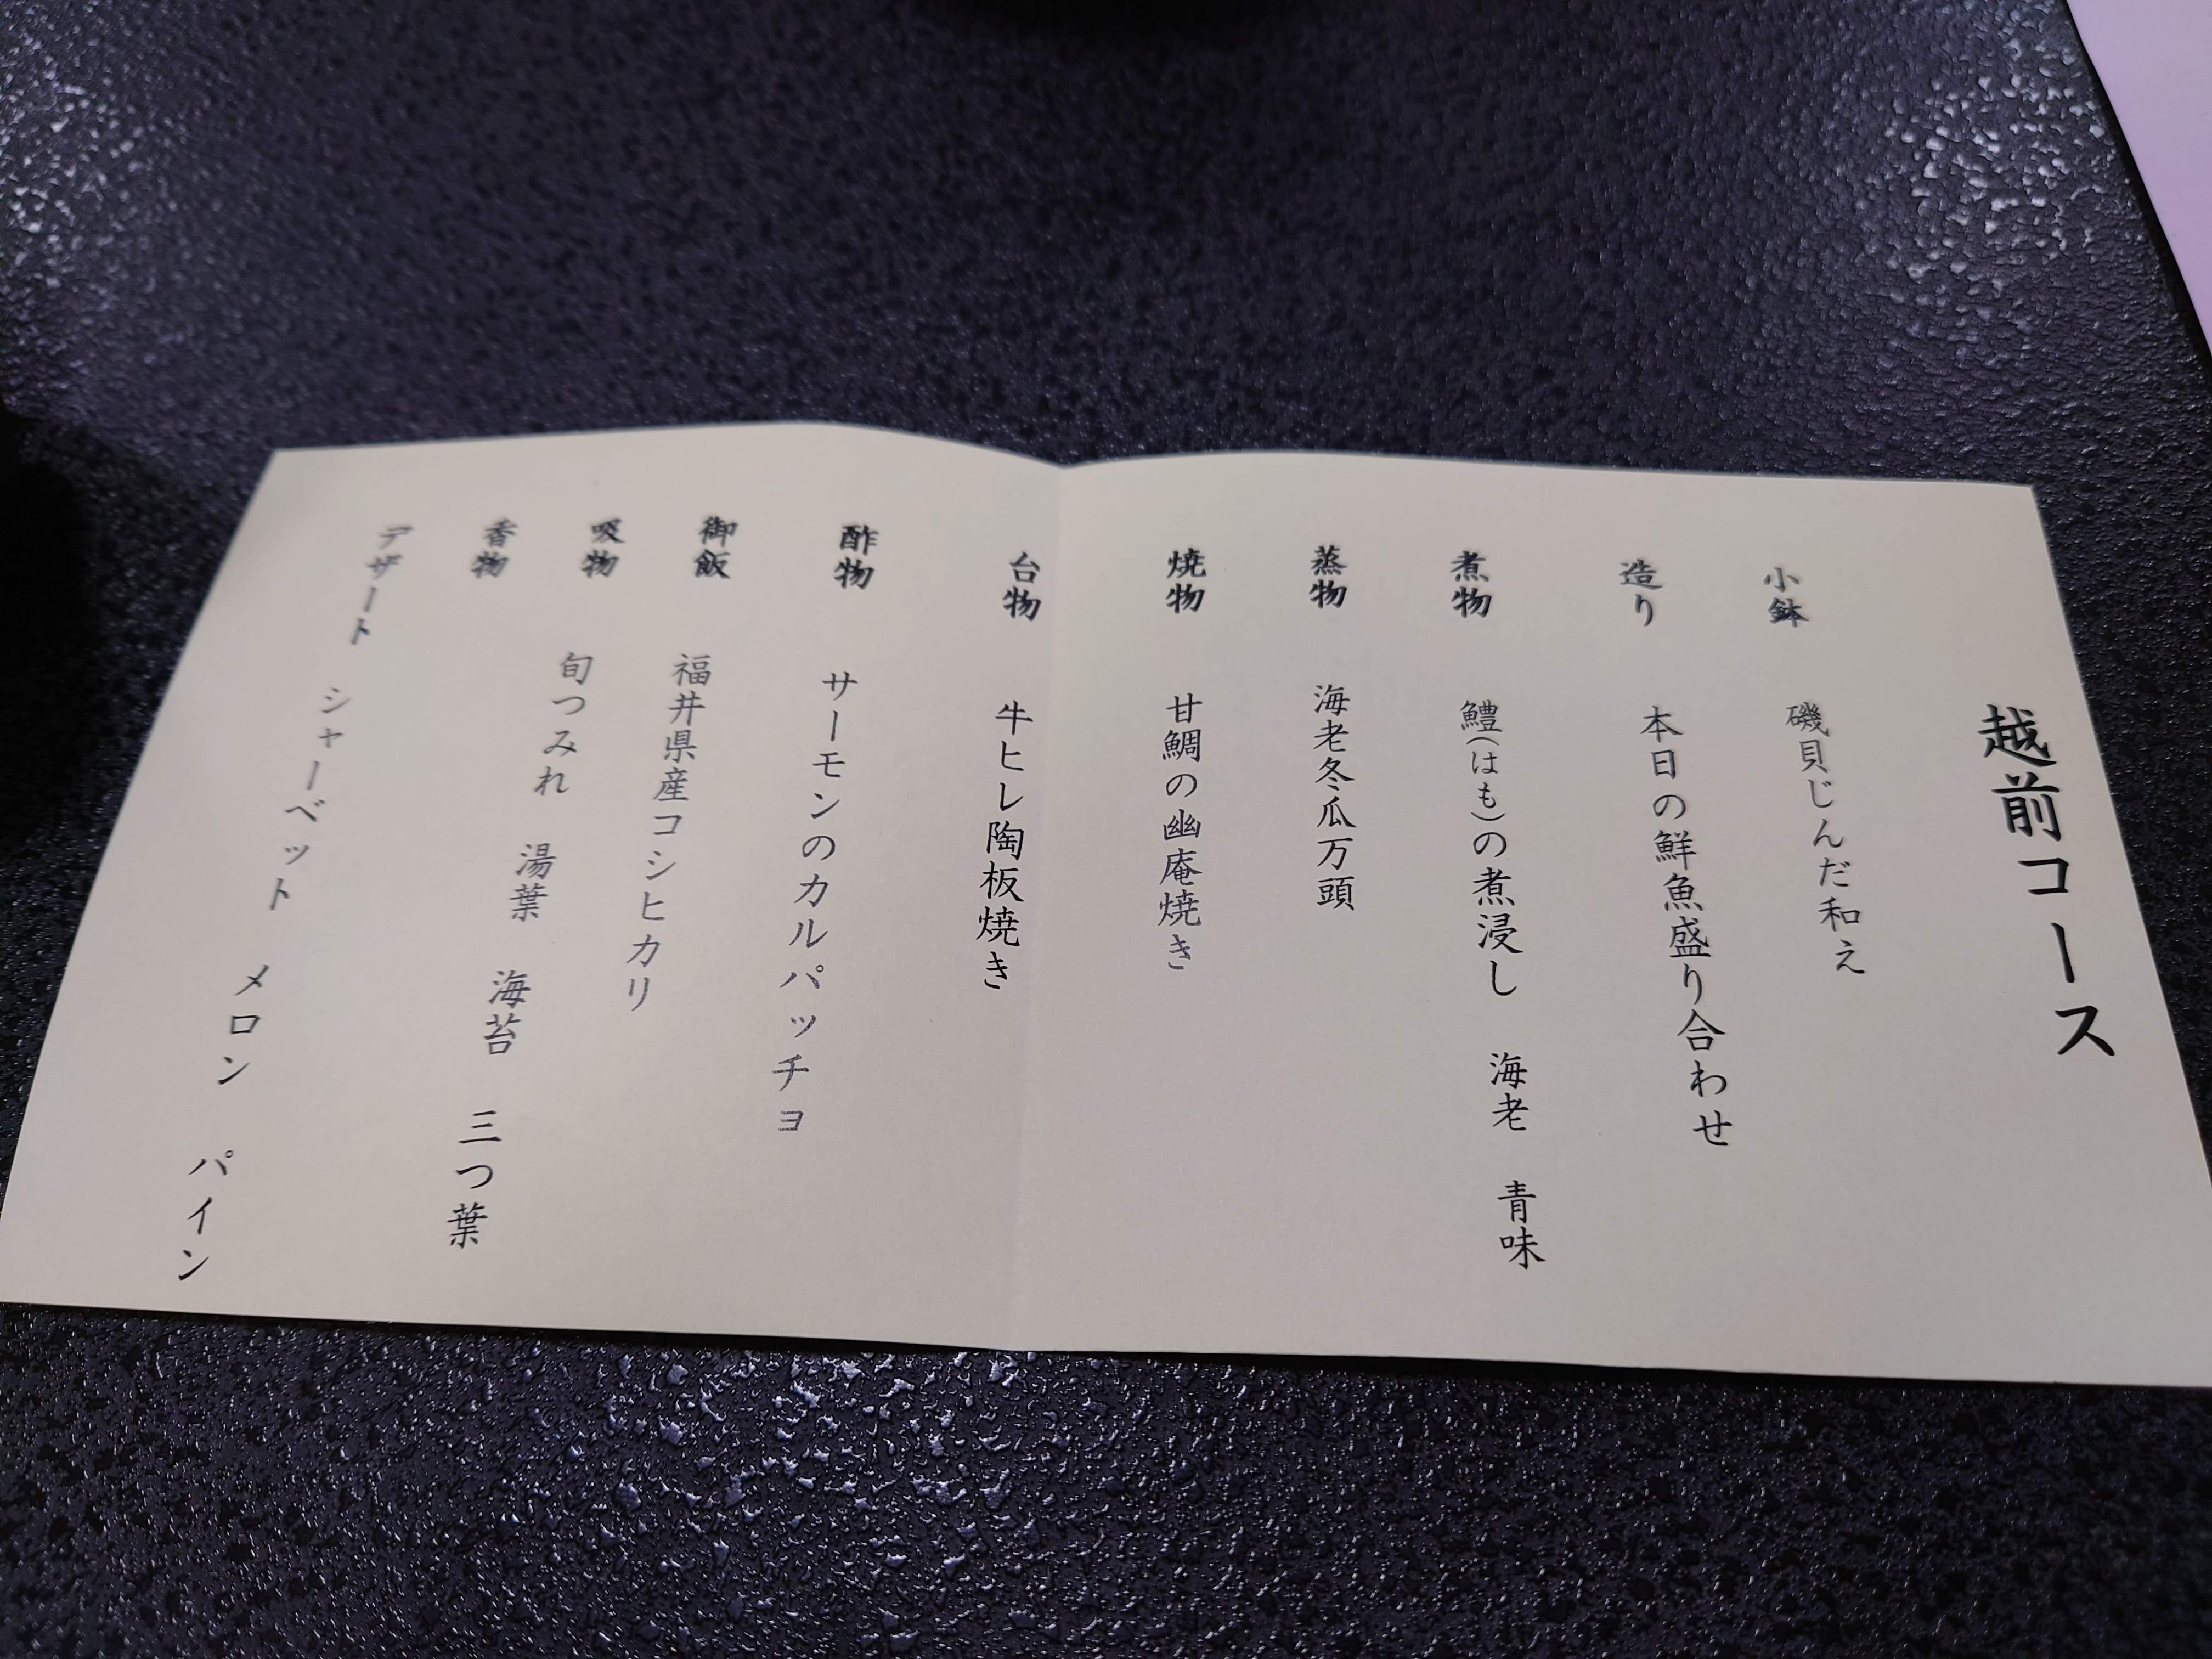 越前コース
小鉢 磯貝じんだ和え
造り 本日の鮮魚盛り合わせ
煮物 鱧(はも)の煮浸し 海老 青味
蒸物 海老冬瓜万頭
焼物 甘鯛の幽庵焼き
台物 牛ヒレ陶板焼き
酢物 サーモンのカルパッチョ
御飯 福井県産コシヒカリ
吸物 旬つみれ 湯葉 海苔 三つ葉
香物
デザート シャーベット メロン パイン